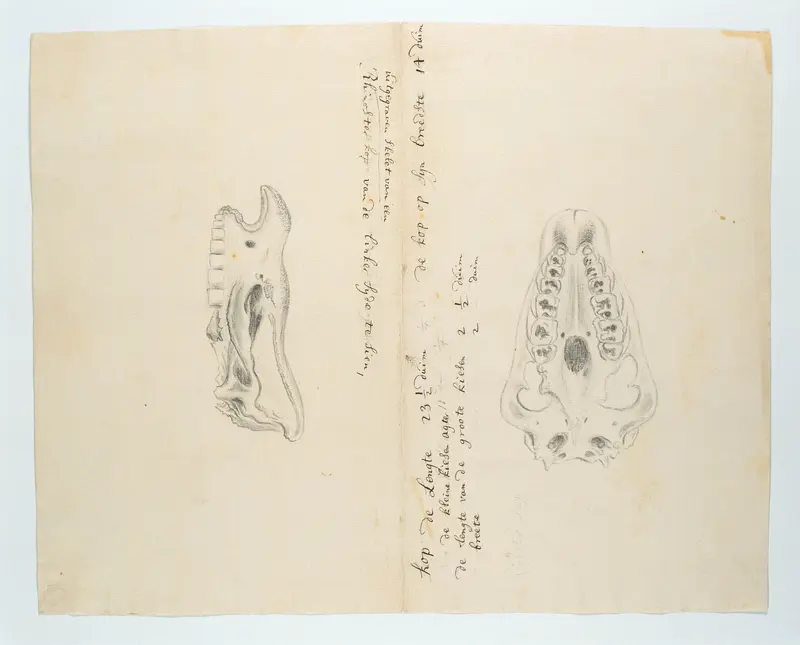 uitgegraven Skelet van een
Rhinoster kop van de linker Syde te Sien,
kop de Lengte 23 1/2 duim de kop op Syn breedste 14 duim
de kleine kiesen agter
de lengte van de groote kiesen 2 1/2 duim
breete 2 duim